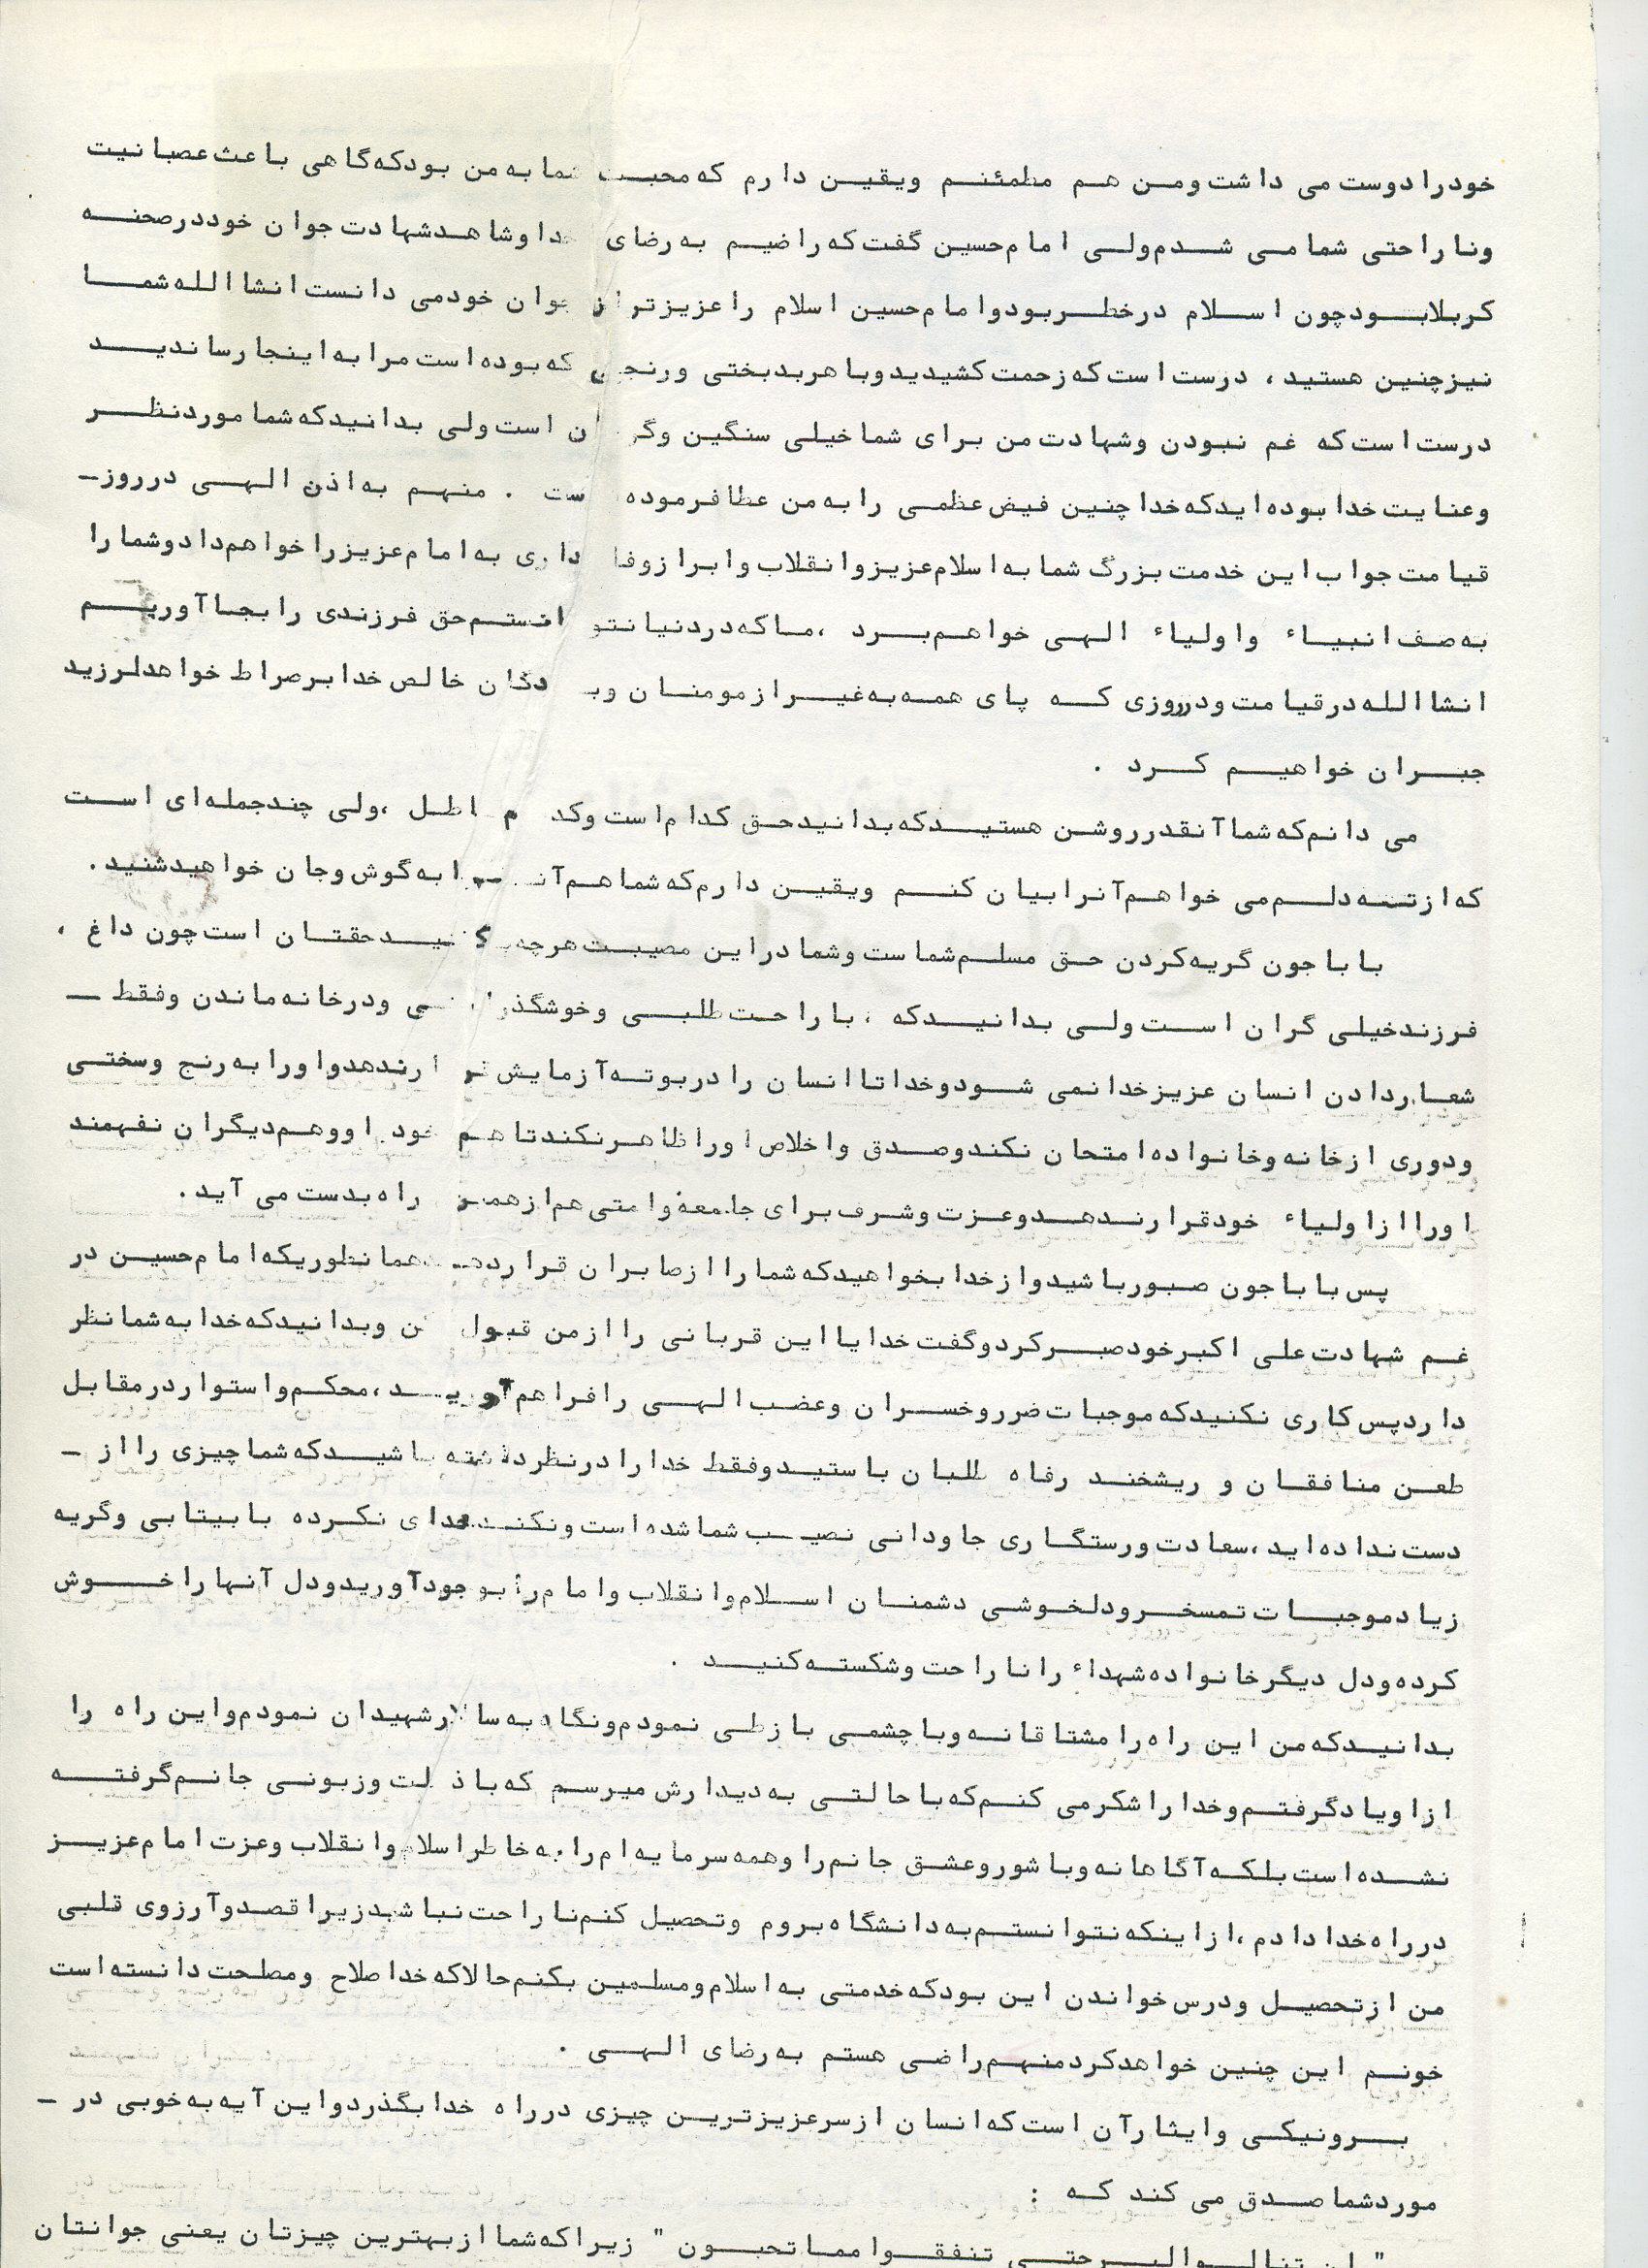 خود را دوست می داشت ومن هم مطمئنم ویقین دارم که محبت شما به من بود که گاهی باعث عصبانیت
وناراحتی شما می شدم ولی امام حسین گفت که راضیم به رضای خدا وشاهد شهادت جوان خود در صحنه
کربلا بود چون اسلام در خطر بود و امام حسین اسلام را عزیزتر از جوان خود می دانست انشاالله شما
نیز چنین هستید ، درست است که زحمت کشیدید و با هر بدبختی ورنجی که بوده است مرا به اینجا رساندید
درست است که غم نبودن وشهادت من برای شما خیلی سنگین وگران است ولی بدانید که شما مورد نظر
وعنایت خدا بوده اید که خدا چنین فیض عظمی را به من عطا فرموده است . منهم به اذن الهی در روز ـ
قیامت جواب این خدمت بزرگ شما به اسلام عزیز و انقلاب و ابراز وفاداری به امام عزیز را خواهم داد و شما را
به صف انبیاء واولیاء الهی خواهم برد ، ما که در دنیا نتوانستم حق فرزندی را بجا آوریم
انشاالله در قیامت ودرروزی که پای همه به غیر از مومنان وبندگان خالص خدا بر صراط خواهد لرزید
جبران خواهیم کرد .
می دانم که شما آنقدر روشن هستید که بدانید حق کدام است وکدام باطل ، ولی چند جمله ای است
که از ته دلم می خواهم آنرا بیان کنم ویقین دارم که شما هم آن را به گوش وجان خواهید شنید .
باباجون گریه کردن حق مسلم شماست وشما در این مصیبت هر چه بکنید حقتان است چون داغ ،
فرزند خیلی گران است ولی بدانید که ، با راحت طلبی وخوشگذرانی ودر خانه ماندن وفقط ـ
شعار دادن انسان عزیز خدا نمی شود و خدا تا انسان را در بوته آزمایش قرار ندهد و او را به رنج وسختی
ودوری از خانه وخانواده امتحان نکند وصدق واخلاص او را ظاهر نکند تا هم خود او وهم دیگران نفهمند
او را از اولیاء خود قرار ندهد وعزت وشرف برای جامعه وامتی هم از همین راه بدست می آید .
پس باباجون صبور باشید واز خدا بخواهید که شما را از صابران قرار دهد همانطوریکه امام حسین در
غم شهادت علی اکبر خود صبر کرد وگفت خدایا این قربانی را از من قبول کن وبدانید که خدا به شما نظر
دارد پس کاری نکنید که موجبات ضرر وخسران وغضب الهی را فراهم آورید ، محکم و استوار در مقابل
طعن منافقان و ریشخند رفاه طلبان باستید وفقط خدا را در نظر داشته باشید که شما چیزی را از ـ
دست نداده اید ، سعادت ورستگاری جاودانی نصیب شما شده است ونکند خدای نکرده با بیتابی وگریه
زیاد موجبات تمسخر ودلخوشی دشمنان اسلام وانقلاب وامام را بوجود آورید ودل آنها را خوش
کرده ودل دیگر خانواده شهداء را ناراحت وشکسته کنید .
بدانید که من این راه را مشتاقانه وبا چشمی باز طی نمودم ونگاه به سالار شهیدان نمودم و این راه را
از او یاد گرفتم وخدا را شکر می کنم که با حالتی به دیدارش میرسم که با ذلت وزبونی جانم گرفته
نشده است بلکه آگاهانه وبا شور وعشق جانم را وهمه سرمایه ام را به خاطر اسلام وانقلاب وعزت امام عزیز
در راه خدا دادم ، از اینکه نتوانستم به دانشگاه بروم وتحصیل کنم ناراحت نباشید زیرا قصد وآرزوی قلبی
من از تحصیل ودرس خواندن این بود که خدمتی به اسلام ومسلمین بکنم حالا که خدا صلاح ومصلحت دانسته است
خونم این چنین خواهد کرد منهم راضی هستم به رضای الهی .
برونیکی وایثار آن است که انسان از سر عزیزترین چیزی در راه خدا بگذرد واین آیه به خوبی در ـ
مورد شما صدق می کند که :
" لن تنالوالبر حتی تنفقوا مما تحبون " زیرا که شما از بهترین چیزتان یعنی جوانتان